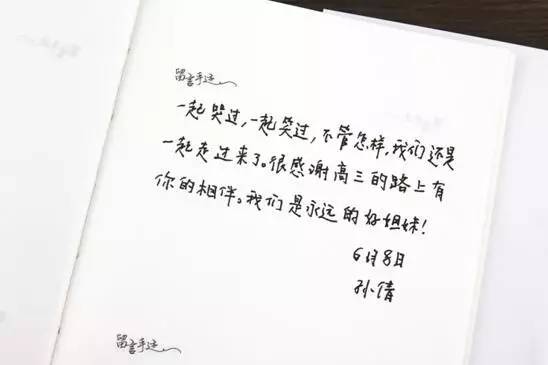 留言手迹
一起哭过,一起笑过,不管怎样,我们还是
一起走过来了。很感谢高三的路上有
你的相伴。我们是永远的好姐妹!
6月8日
孙倩
留言手迹